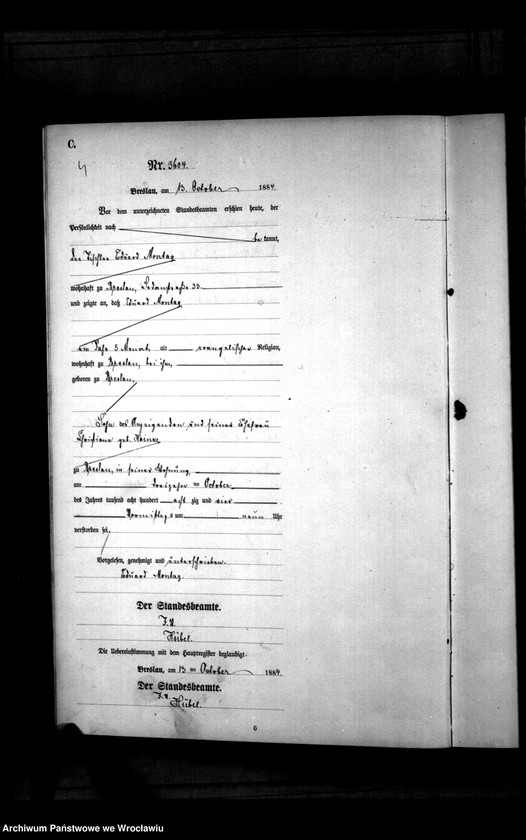 C.
4
Nr. 3604.
Breslau, am 13. October 1884
Vor dem unterzeichneten Standesbeamten erschien heute, der
Persönlichkeit nach
bekannt,
der Tischler Eduard Montag
wohnhaft zu Breslau, Sedanstraße 33.
und zeigte an, daß Eduard Montag
ein Jahr 5 Monat alt evangelischer Religion,
wohnhaft zu Breslau, bei ihm,
geboren zu Breslau,
Sohn des Anzeigenden und seiner Ehefrau
Christiane geb. Heinze
zu Breslau, in seiner Wohnung
am dreizehn ten October
des Jahres tausend acht hundert achtzig und vier
Vormittags um neun Uhr
verstorben sei.
Vorgelesen, genehmigt und unterschrieben.
Eduard Montag.
Der Standesbeamte.
I. V.
Hübel.
Die Uebereinstimmung mit dem Hauptregister beglaubigt.
Breslau, am 13 ten October 1884.
Der Standesbeamte.
I. V.
Hübel.
6
Archiwum Państwowe we Wrocławiu